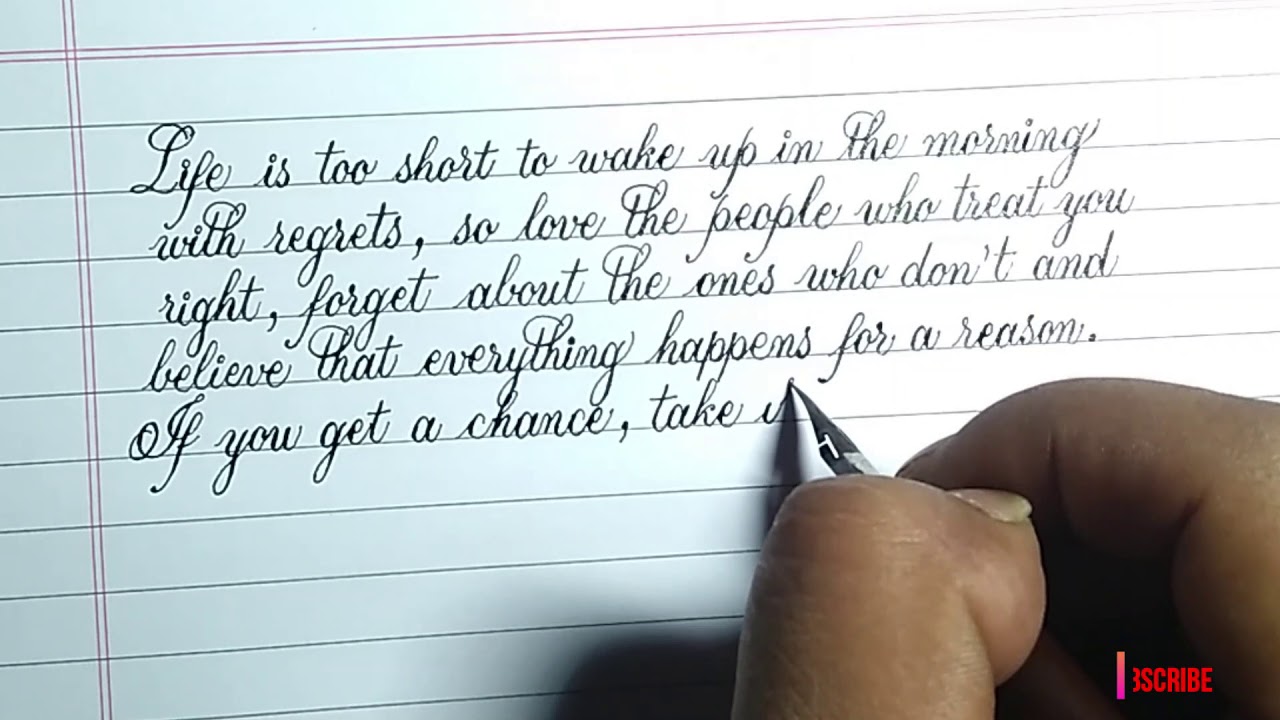 Life is too short to wake up in the morning
with regrets, so love the people who treat you
right, forget about the ones who don't and
believe that everything happens for a reason.
If you get a chance, take
BSCRIBE